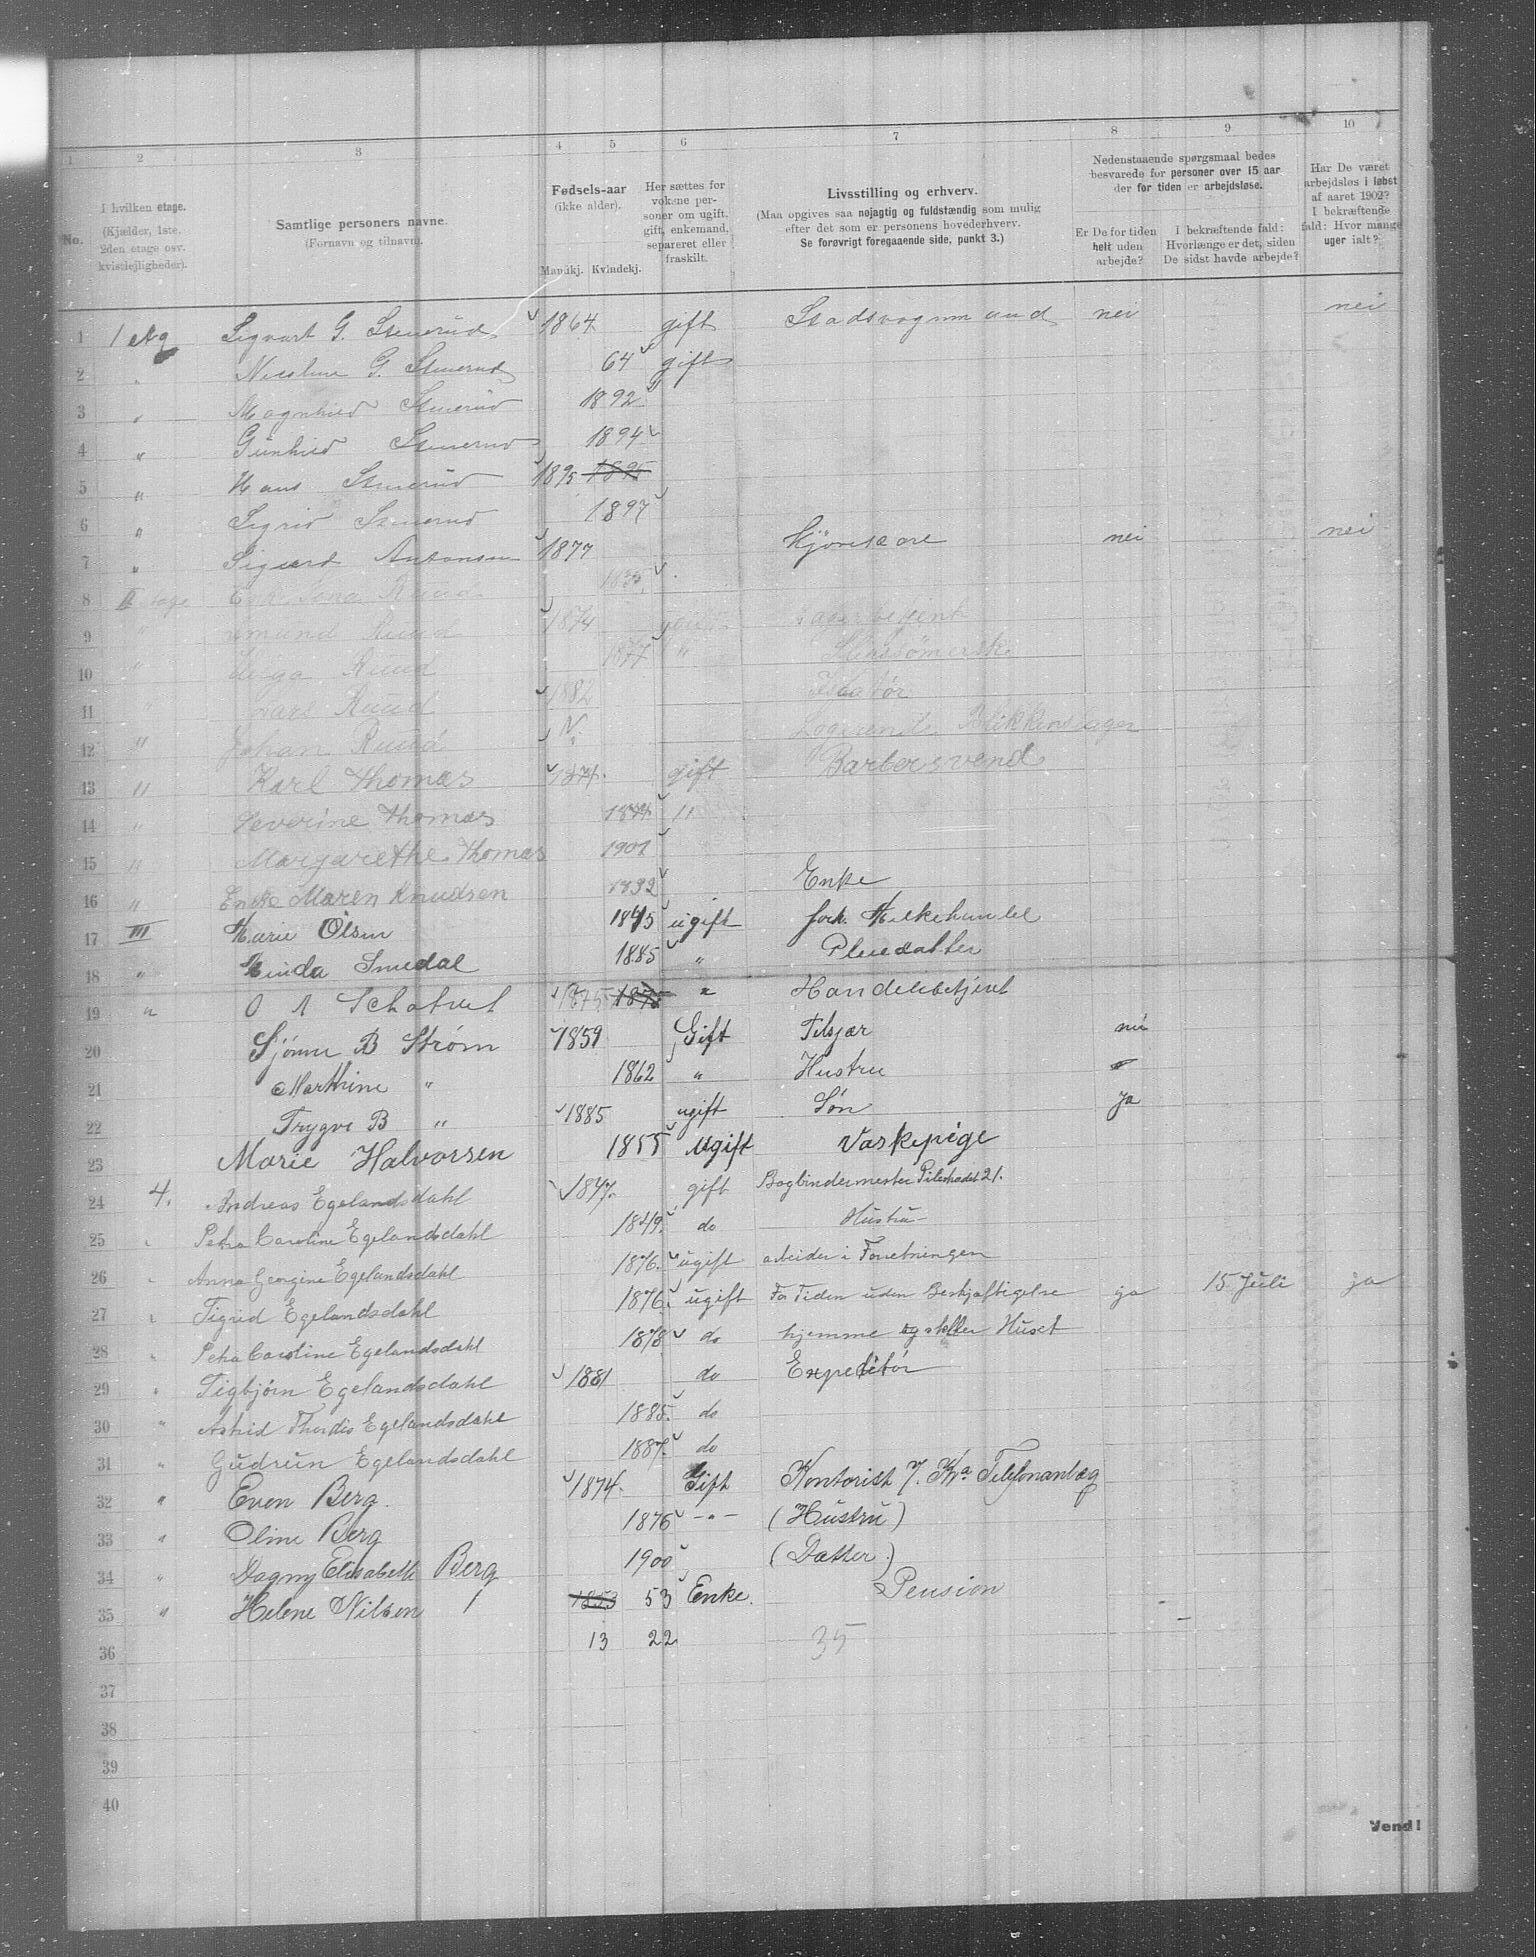 1 2 3 4 5 6 7 8 9 10
No.
I hvilken etage. (Kjælder, 1ste, 2den etage osv. kvistlejligheder).
Samtlige personers navne. (Fornavn og tilnavn).
Fødsels-aar (ikke alder). Mandkj. Kvindekj.
Her sættes for voksne personer om ugift, gift, enkemand, separeret eller fraskilt.
Livsstilling og erhverv.
(Maa opgives saa nøjagtig og fuldstændig som mulig
efter det som er personens hovederhverv.
Se forøvrigt foregaaende side, punkt 3.)
Nedenstaaende spørgsmaal bedes
besvarede for personer over 15 aar
der for tiden er arbejdsløse.
Er De for tiden helt uden arbejde?
I bekræftende fald: Hvorlænge er det, siden De sidst havde arbejde?
Har De været arbejdsløs i løbet af aaret 1902? I bekræftende fald: Hvor mange uger ialt?
1 1 etg Sigvart G. Stenerud 1864 gift Stadsvognmand nei nei
2 " Nicoline G. Stenerud 64 gift
3 " Magnhild Stenerud 1892
4 " Gunhild Stenerud 1894
5 " Hans Stenerud 1895 1895
6 " Sigrid Stenerud 1897
7 " Sigurd Antonsen 1877 Kjørekare nei nei
8 II etage Ruud 1835
9 " Ruud 1874
10 " Helga Ruud 1877 "
11 Ruud 1882
12 " Johan Ruud Logerende Blikkenslager
13 " Karl Thomas 1874 gift Barbersvend
14 " Severine Thomas 1874 "
15 " Margarethe Thomas 1901
16 " Enke Maren Knudsen 1832 Enke
17 III Marie Olsen 1845 ugift forh. Melkehandel
18 " Minda Smedal 1885 " Pleiedatter
19 " O A 1875 1875 " Handelsbetjent
20 B Strøm 1859 Gift nei
21 Marthine " 1862 " Hustru "
22 Trygve B " 1885 ugift Søn ja
23 Marie Halvorsen 1855 ugift Vaskepige
24 4. Andreas Egelandsdahl 1847 gift Bogbindermester Pilestrædet 21.
25 " Petra Caroline Egelandsdahl 1849 do Hustru
26 " Anna Georgine Egelandsdahl 1876 ugift arbeider i Forretningen
27 " Sigrid Egelandsdahl 1876 ugift For Tiden uden Beskjæftigelse ja 15 Juli ja
28 " Petra Caroline Egelandsdahl 1878 do hjemme og steller Huset
29 " Sigbjørn Egelandsdahl 1881 do Expeditør
30 " Astrid Thordis Egelandsdahl 1885 do
31 " Gudrun Egelandsdahl 1887 do
32 " Even Berg. 1874 Gift Kontorist v. Kra Telefonanlæg
33 " Oline Berg 1876 -"- (Hustru)
34 " Dagny Elisabeth Berg 1900 (Datter)
35 " Helene Nilsen 1853 53 Enke. Pension
36 13 22 35
37
38
39
40
Vend!